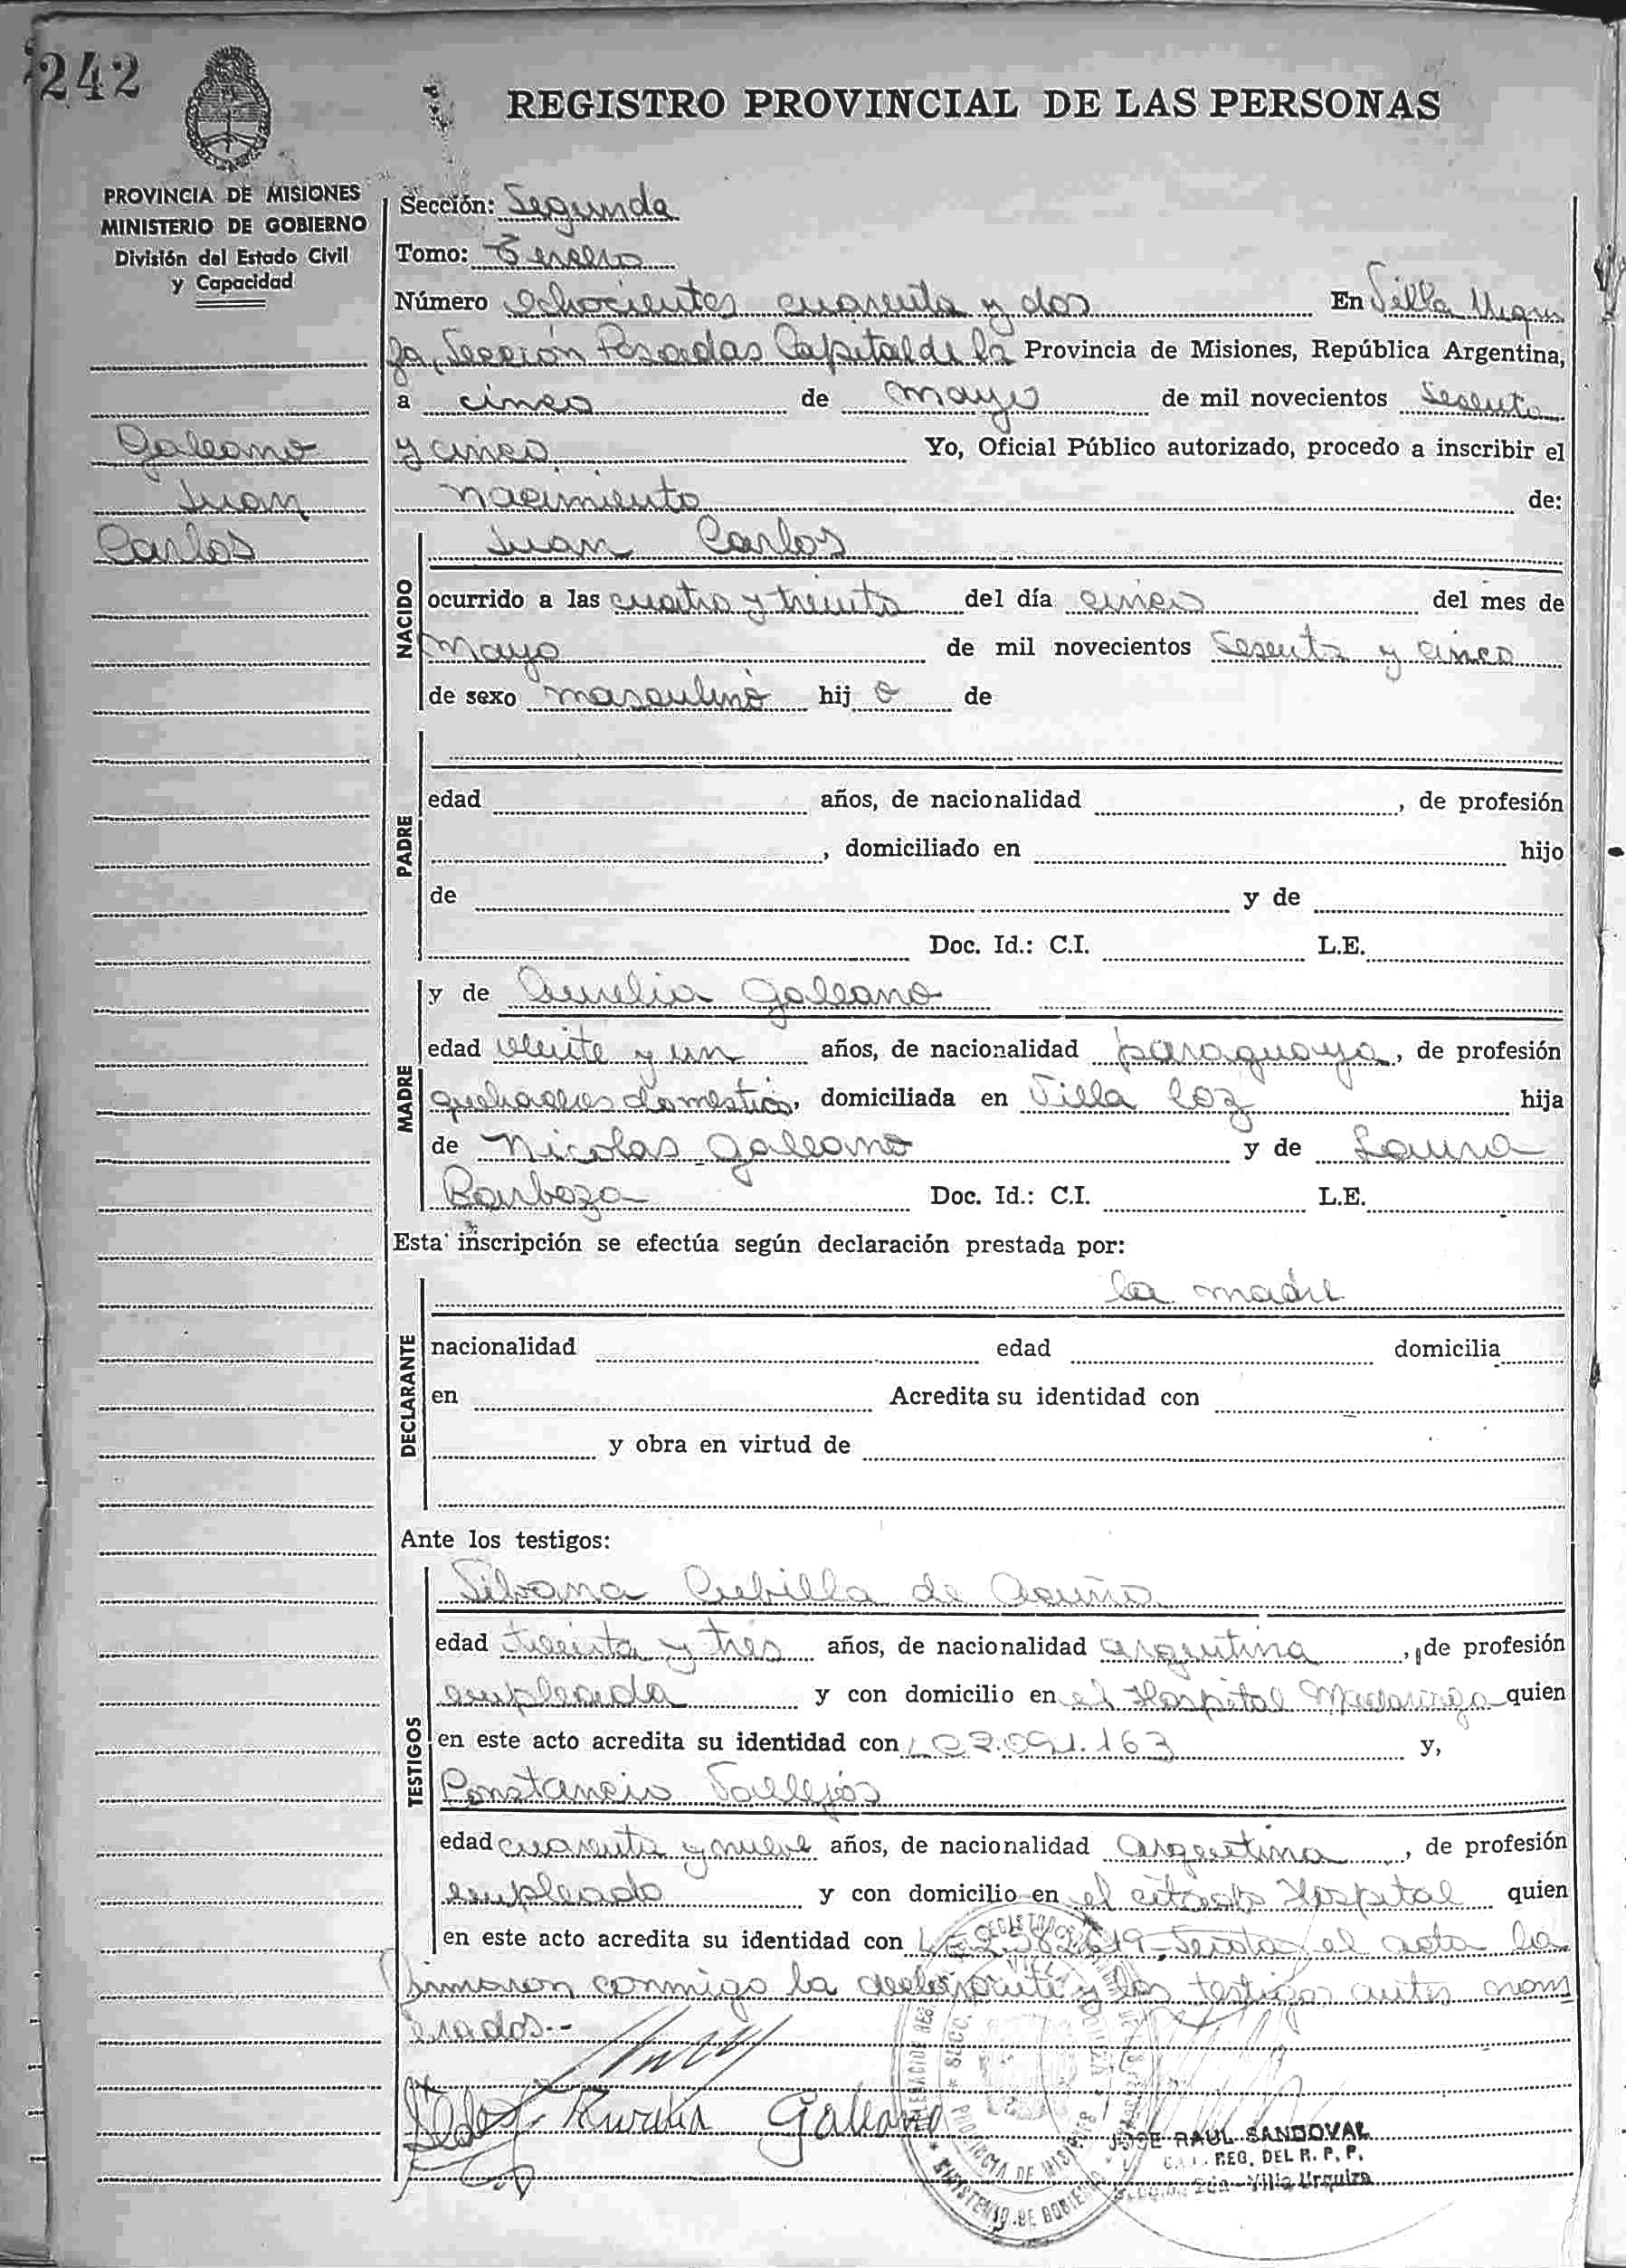 242
REGISTRO PROVINCIAL DE LAS PERSONAS
PROVINCIA DE MISIONES
MINISTERIO DE GOBIERNO
División del Estado Civil
y Capacidad
Galeano
Juan
Carlos
Sección: Segunda
Tomo: Tercero
Número ochocientos cuarenta y dos En Villa Urqui
za, Sección Posadas Capital de la Provincia de Misiones, República Argentina,
a cinco de mayo de mil novecientos sesenta
y cinco Yo, Oficial Público autorizado, procedo a inscribir el
nacimiento de:
NACIDO
Juan Carlos
ocurrido a las cuatro y treinta del día cinco del mes de
Mayo de mil novecientos sesenta y cinco
de sexo masculino hijo de
PADRE
edad años, de nacionalidad , de profesión
, domiciliado en hijo
de y de
Doc. Id.: C.I. L.E.
MADRE
y de Aurelia Galeano
edad veinte y un años, de nacionalidad paraguaya, de profesión
quehaceres domesticos, domiciliada en Villa Coz hija
de Nicolas Galeano y de Laura
Barboza Doc. Id.: C.I. L.E.
Esta inscripción se efectúa según declaración prestada por:
DECLARANTE
la madre
nacionalidad edad domicilia
en Acredita su identidad con
y obra en virtud de
Ante los testigos:
TESTIGOS
Silvana Cubilla de Acuña
edad treinta y tres años, de nacionalidad argentina, de profesión
empleada y con domicilio en el Hospital Madariaga quien
en este acto acredita su identidad con LC 2.091.163 y,
Constancio Vallejos
edad cuarenta y nueve años, de nacionalidad argentina, de profesión
empleado y con domicilio en el citado Hospital quien
en este acto acredita su identidad con LE 2.582.619 el acta la
firmaron conmigo la declarante y los testigos antes nom
brados.-
Aurelia Galeano
JOSE RAUL SANDOVAL
REG. DEL R. P. P.
Villa Urquiza
PROVINCIA DE MISIONES
MINISTERIO DE GOBIERNO